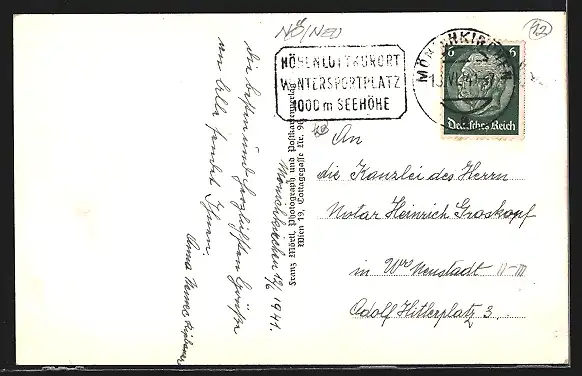 NÖ/NEU
92
HÖHENLUFTKURORT
WINTERSPORTPLATZ
1000 m SEEHÖHE
MÖNICHKIRCHEN
6 6
Deutsches Reich
An
die Kanzlei des Herrn
Notar Heinrich Groskopf
in Wr. Neustadt N-D.
Adolf Hitlerplatz 3.
Franz Mörtl, Photograph und Postkartenverlag
Wien 19, Cottagegasse Nr. 90
Mönichkirchen 12/6 1941.
Die besten und herzlichsten Grüße
von Allen sendet Ihnen
Anna